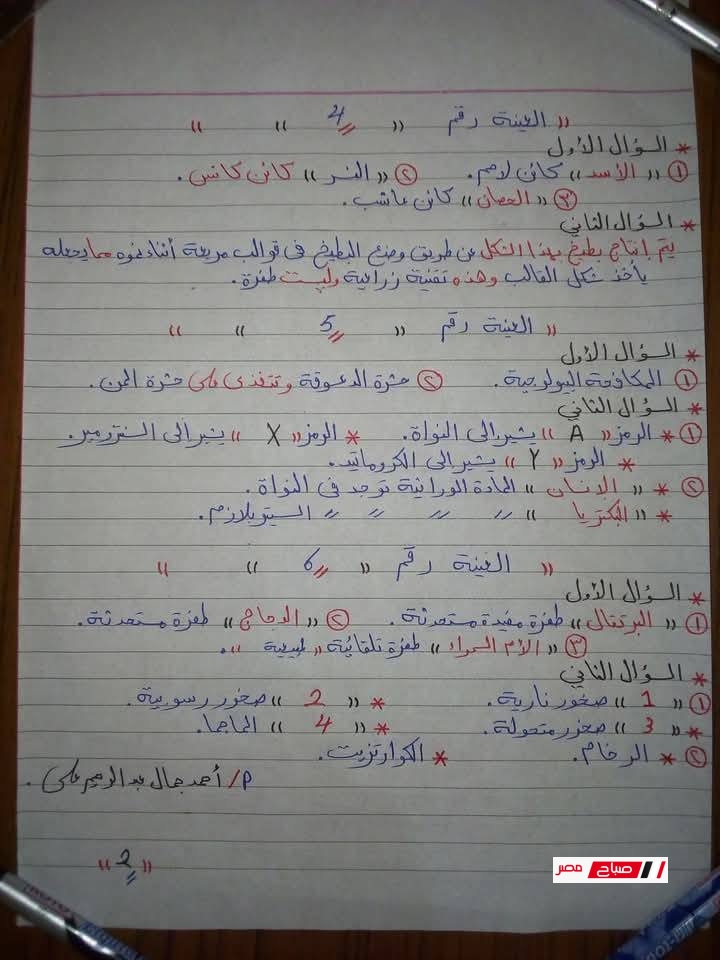 " العينة رقم " 4 " "
* السؤال الأول
① " الأسد " كائن لاحم. ② " النسر " كائن كانس.
③ " الحصان " كائن عاشب.
* السؤال الثاني
يتم إنتاج بطيخ بهذا الشكل عن طريق وضع البطيخ فى قوالب مربعة أثناء نموه مما يجعله
يأخذ شكل القالب وهذه تقنية زراعية وليست طفرة.
" العينة رقم " 5 " "
* السؤال الأول
① المكافحة البيولوجية. ② حشرة الدعسوقة وتتغذى على حشرة المن.
* السؤال الثاني
① * الرمز " A " يشير إلى النواة. * الرمز " X " يشير إلى السنترومير.
* الرمز " Y " يشير إلى الكروماتيد.
② * " الإنسان " المادة الوراثية توجد فى النواة.
* " البكتريا " " " " " السيتوبلازم.
" العينة رقم " 6 " "
* السؤال الأول
① " البرتقال " طفرة مفيدة مستحدثة. ② " الدجاج " طفرة مستحدثة.
③ " الأم السمراء " طفرة تلقائية " طبيعية ".
* السؤال الثاني
① " 1 " صخور نارية. * " 2 " صخور رسوبية.
* " 3 " صخور متحولة. * " 4 " الماجما.
② * الرخام. * الكوارتزيت.
م/ أحمد جمال عبد الرحيم على.
" 2 "
صباح مصر